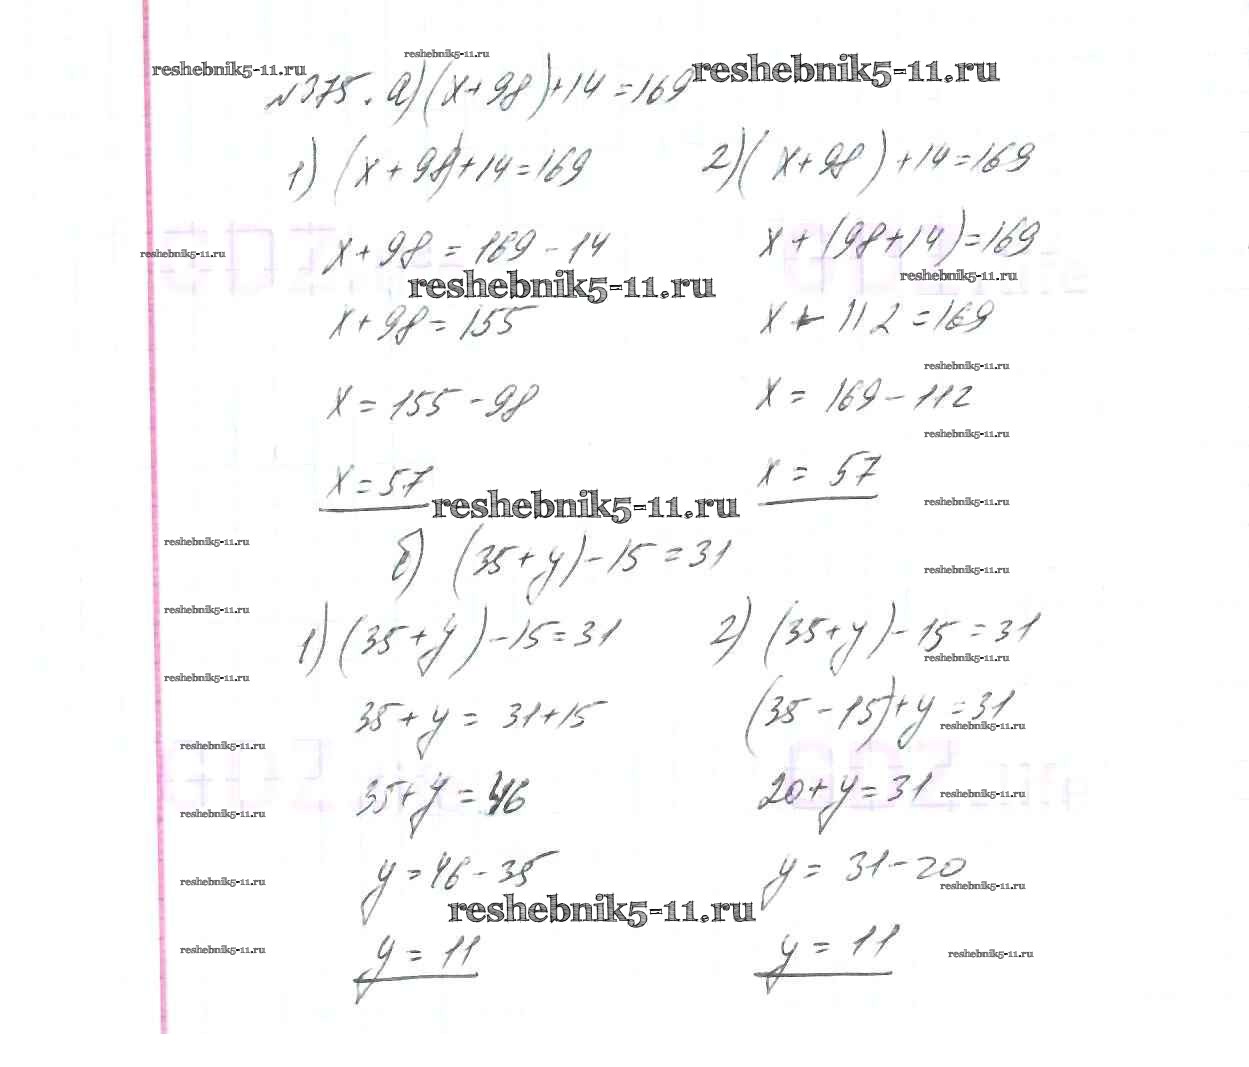 reshebnik5-11.ru
reshebnik5-11.ru
reshebnik5-11.ru
№375. а) (x+98)+14=169
1) (x+98)+14=169
2) (x+98)+14=169
reshebnik5-11.ru
x+98=169-14
x+(98+14)=169
reshebnik5-11.ru
reshebnik5-11.ru
x+98=155
x+112=169
reshebnik5-11.ru
x=155-98
x=169-112
reshebnik5-11.ru
x=57
x=57
reshebnik5-11.ru
reshebnik5-11.ru
reshebnik5-11.ru
б) (35+y)-15=31
reshebnik5-11.ru
reshebnik5-11.ru
1) (35+y)-15=31
2) (35+y)-15=31
reshebnik5-11.ru
reshebnik5-11.ru
35+y=31+15
(35-15)+y=31
reshebnik5-11.ru
reshebnik5-11.ru
35+y=46
20+y=31
reshebnik5-11.ru
reshebnik5-11.ru
y=46-35
y=31-20
reshebnik5-11.ru
reshebnik5-11.ru
reshebnik5-11.ru
y=11
y=11
reshebnik5-11.ru
reshebnik5-11.ru